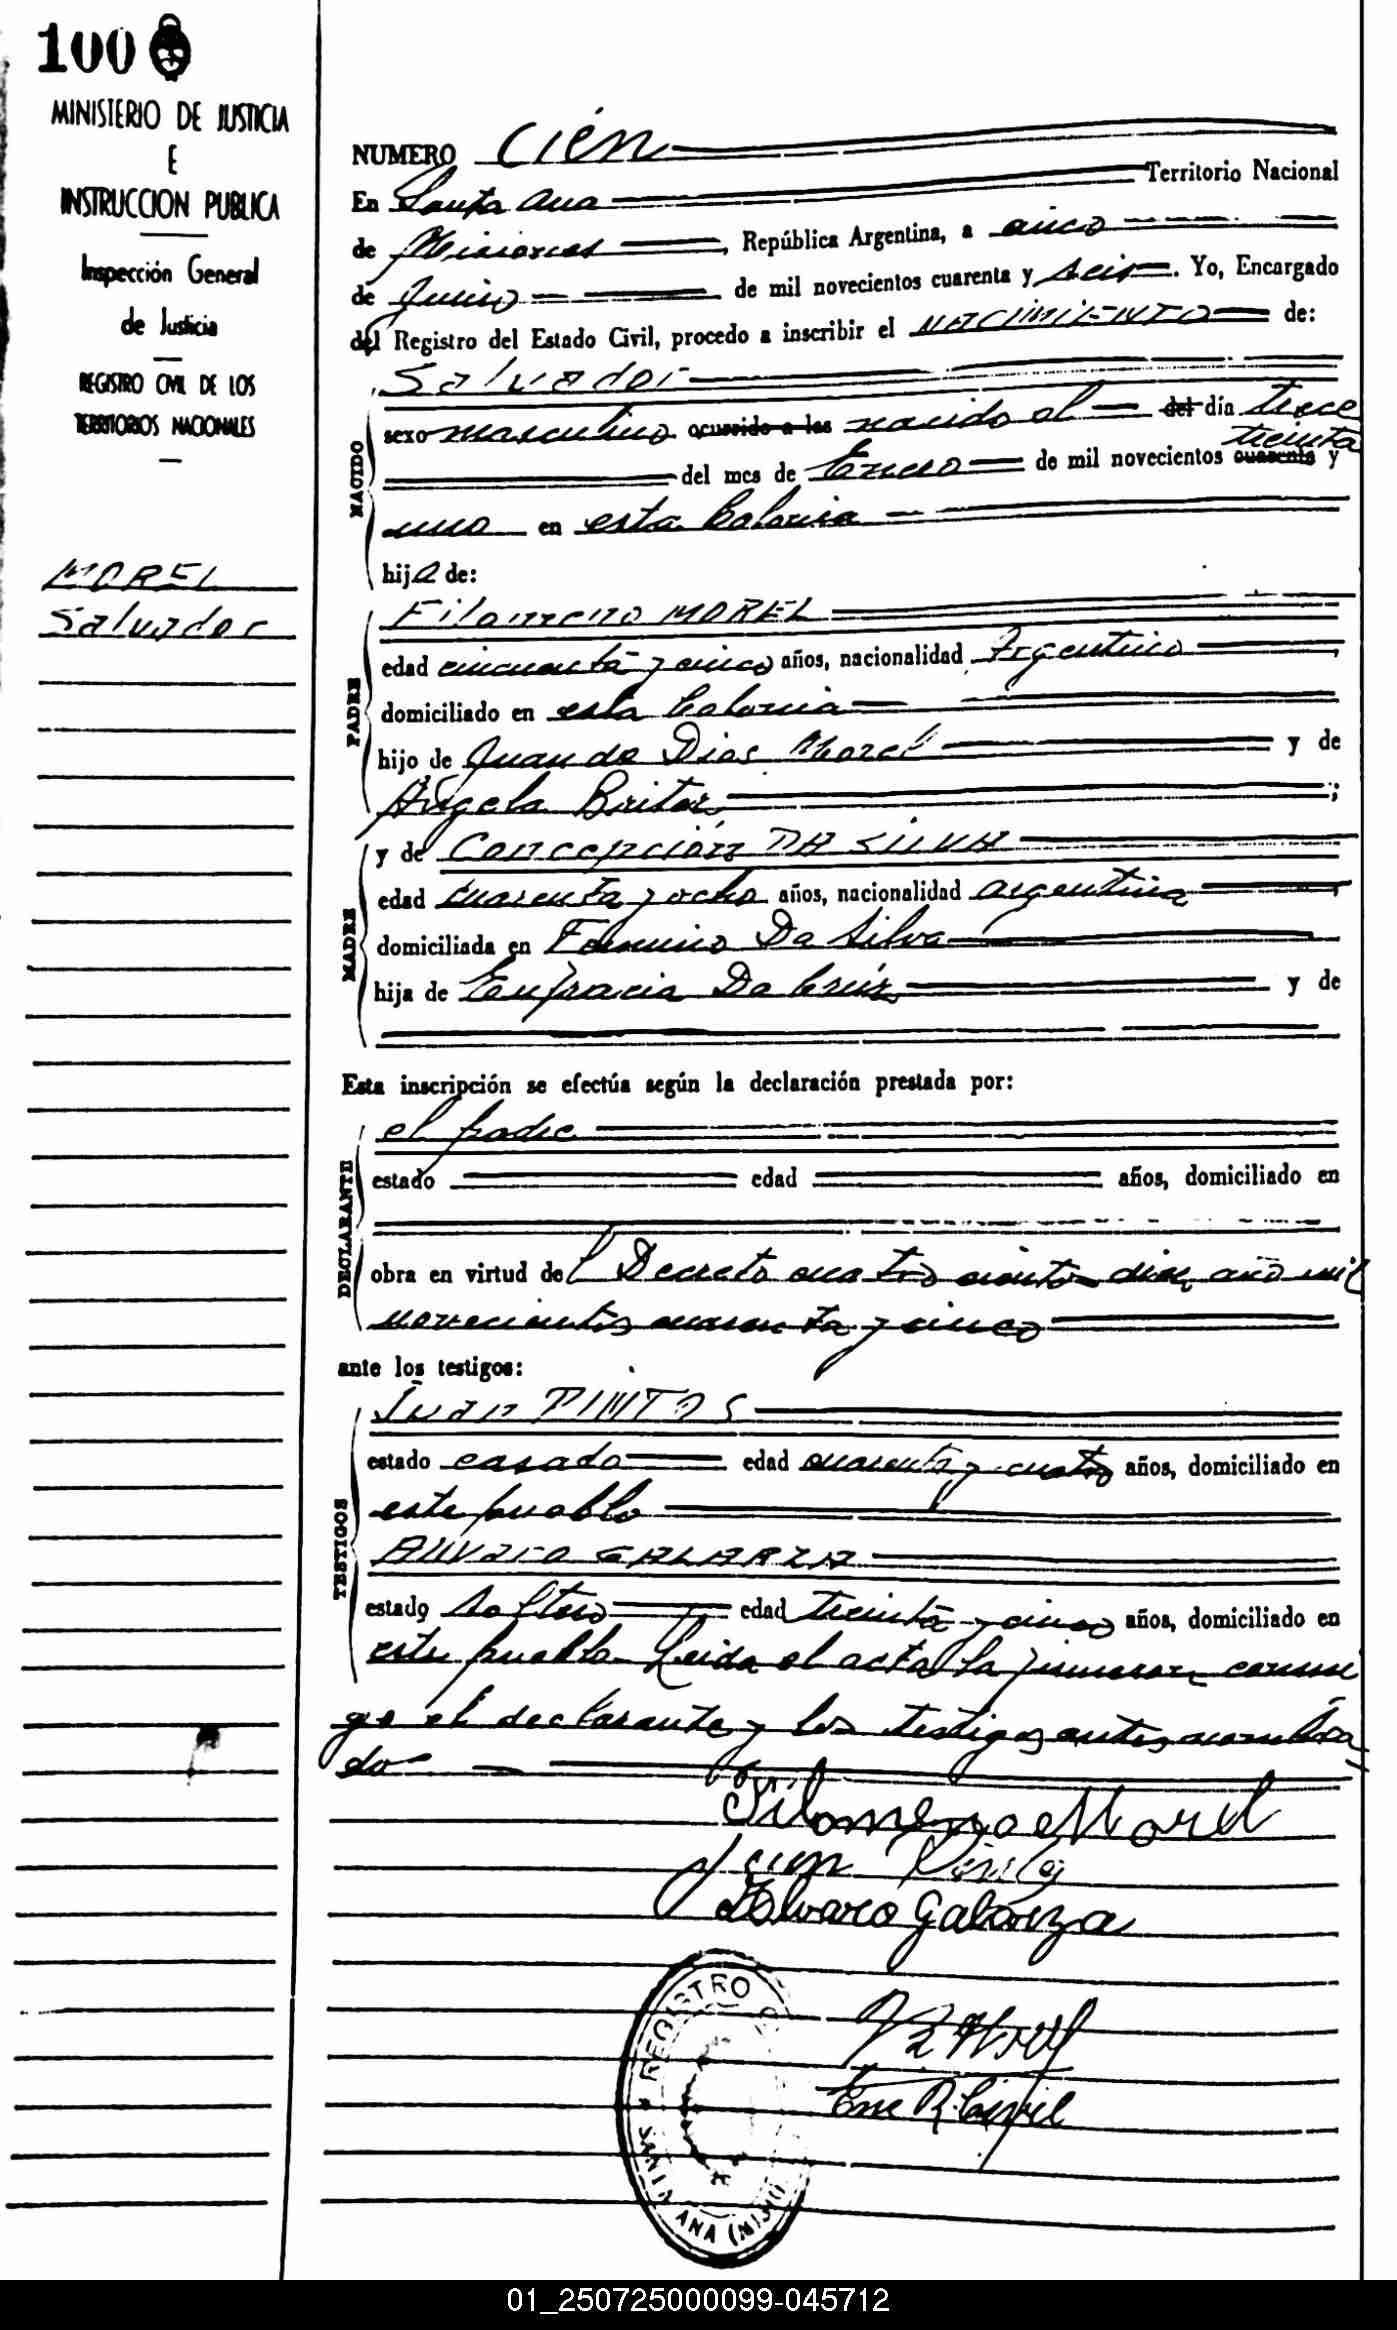 100
MINISTERIO DE JUSTICIA
E
INSTRUCCION PUBLICA
Inspección General
de Justicia
REGISTRO CIVIL DE LOS
TERRITORIOS NACIONALES
MOREL
Salvador
NUMERO Cién
En Santa Ana Territorio Nacional
de Misiones, República Argentina, a cinco
de Junio de mil novecientos cuarenta y seis. Yo, Encargado
del Registro del Estado Civil, procedo a inscribir el NACIMIENTO de:
NACIDO
Salvador
sexo masculino ocurrido a las nacido el del día trece
treinta
del mes de Enero de mil novecientos cuarenta y
uno en esta Colonia
hijo de:
PADRE
Filomeno MOREL
edad cincuenta y cinco años, nacionalidad Argentino,
domiciliado en esta Colonia
hijo de Juan de Dios Morel y de
Angela Britos;
MADRE
y de Concepción DA SILVA
edad cuarenta y ocho años, nacionalidad argentina,
domiciliada en Da Silva
hija de Eufracia Da Crúz y de
Esta inscripción se efectúa según la declaración prestada por:
DECLARANTE
el padre
estado edad años, domiciliado en
obra en virtud del Decreto cuatro cientos diez año mil
novecientos cuarenta y cinco
ante los testigos:
TESTIGOS
Juan PINTOS
estado casado edad cuarenta y cuatro años, domiciliado en
este pueblo
Alvaro GALARZA
estado soltero edad treinta y cinco años, domiciliado en
este pueblo. Leida el acta la firmaron conmi
go el declarante y los testigos antes nombra
dos
Filomeno Morel
Juan
Alvaro Galarza
Enc R. Civil
REGISTRO
SANTA ANA (MIS
01_250725000099-045712